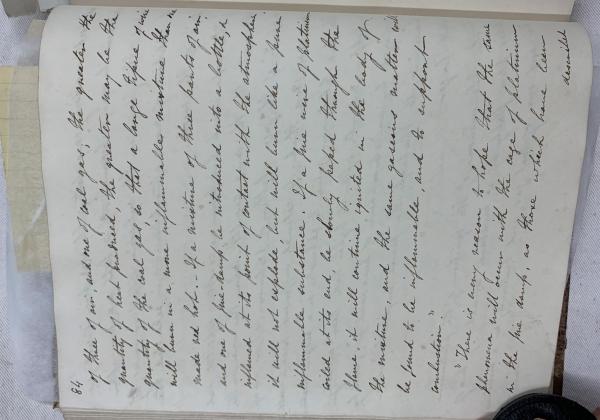 84
of three of air, and one of coal gas; the greater the
quantity of heat produced, the greater may be the
quantity of the coal gas, so that a large tissue of wire
will burn in a more inflammable mixture than
made red hot. If a mixture of three parts of air
and one of fire damp be introduced into a bottle, &
inflamed at its point of contact with the atmosphere
it will not explode, but will burn like a pure
inflammable substance. If a fine wire of platinum
coiled at its end, be slowly passed through the
flame, it will continue ignited in the body of
the mixture, and the same gaseous matter will
be found to be inflammable, and to support
combustion."
"There is every reason to hope that the same
phenomena will occur with the cage of platinum
in the fire damp, as those which have been
described